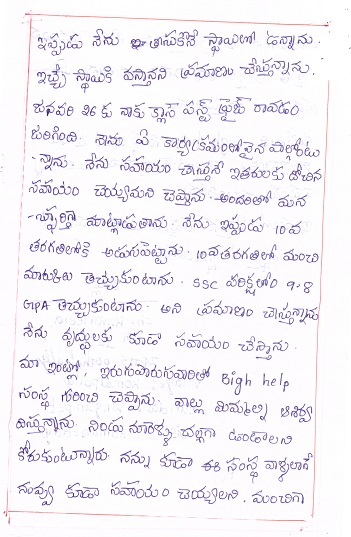 ఇప్పుడు నేను ఈ తీసుకొనే స్థాయిలో ఉన్నాను.
ఇచ్చే స్థాయికి వస్తానని ప్రమాణం చేస్తున్నాను.
జనవరి 26 కు నాకు క్లాస్ ఫస్ట్ ప్రైజ్ రావడం
జరిగింది. నాను ఏ కార్యక్రమంలోనైన పాల్గొంటు
-న్నాను. నేను సహాయం చాస్తునే ఇతరులకు తోచిన
సహాయం చెయ్యమని చెప్తాను. అందరితో మన
-స్ఫూర్తిగా మాట్లాడుతాను. నేను ఇప్పుడు 10వ
తరగతిలోకి అడుగుపెట్టాను. 10వతరగతిలో మంచి
మార్కులు తెచ్చుకుంటాను. SSC పరిక్షలోం 9.8
GPA తెచ్చుకుంటాను. అని ప్రమాణం చాస్తున్నాను
నేను వృద్ధులకు కూడా సహాయం చేస్తాను.
మా ఇంట్లో, ఇరుగుపొరుగువారితో Bigh help
సంస్థ గురించి చెప్తాను. వాల్లు మిమ్మల్ని ఆశిర్వ
దిస్తున్నారు. నిండు నూరేళ్ళు చల్లగా ఉండాలని
కోరుకుంటున్నారు. నన్ను కూడా ఈ సంస్థ వాళ్ళలాగే
నువ్వు కూడా సహాయం చెయ్యలని. మంచిగా